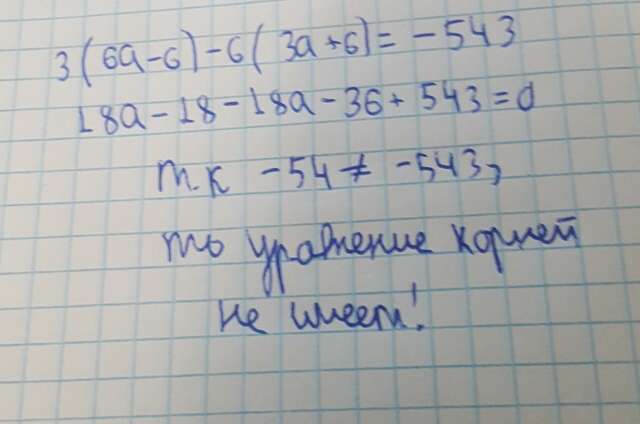 3(6a-6)-6(3a+6)=-543
18a-18-18a-36+543=0
т.к -54≠ -543,
то уравнение корней
не имеет!